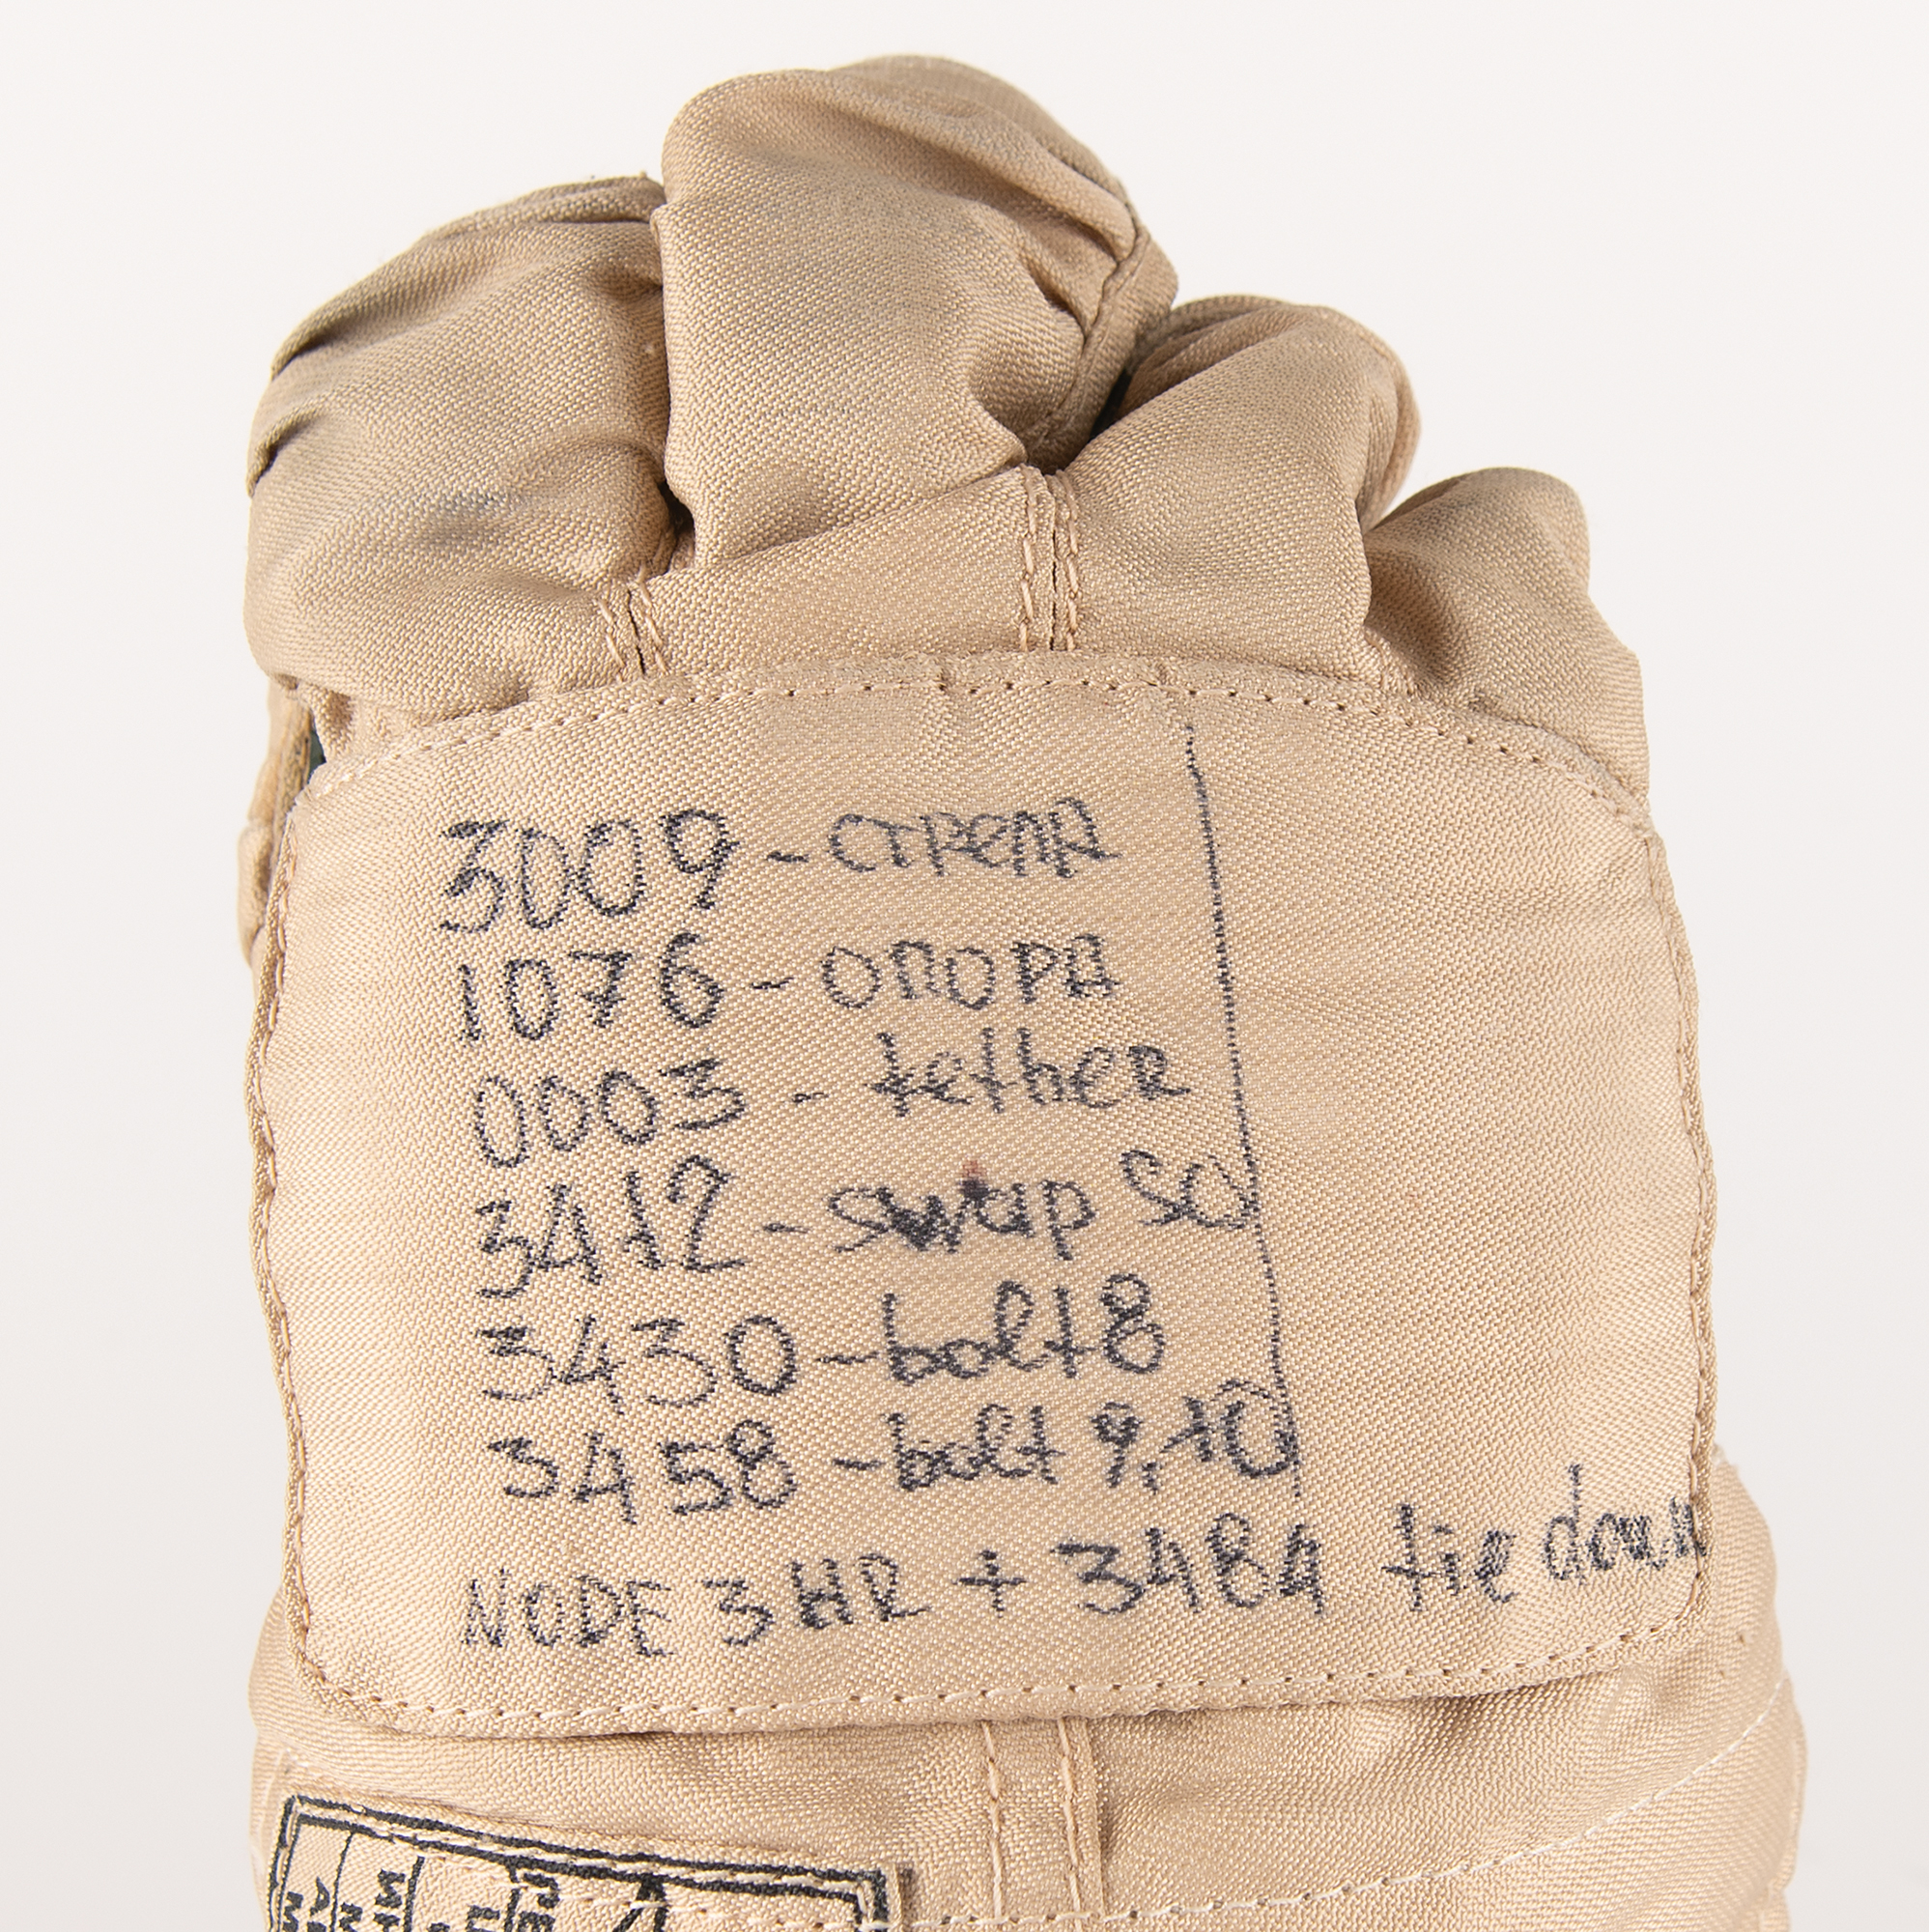 3009 - стрела
1076 - опора
0003 - tether
3412 - swap SO
3430 - bolt 8
3458 - bolt 9,10
NODE 3 HR + 3484 tie down